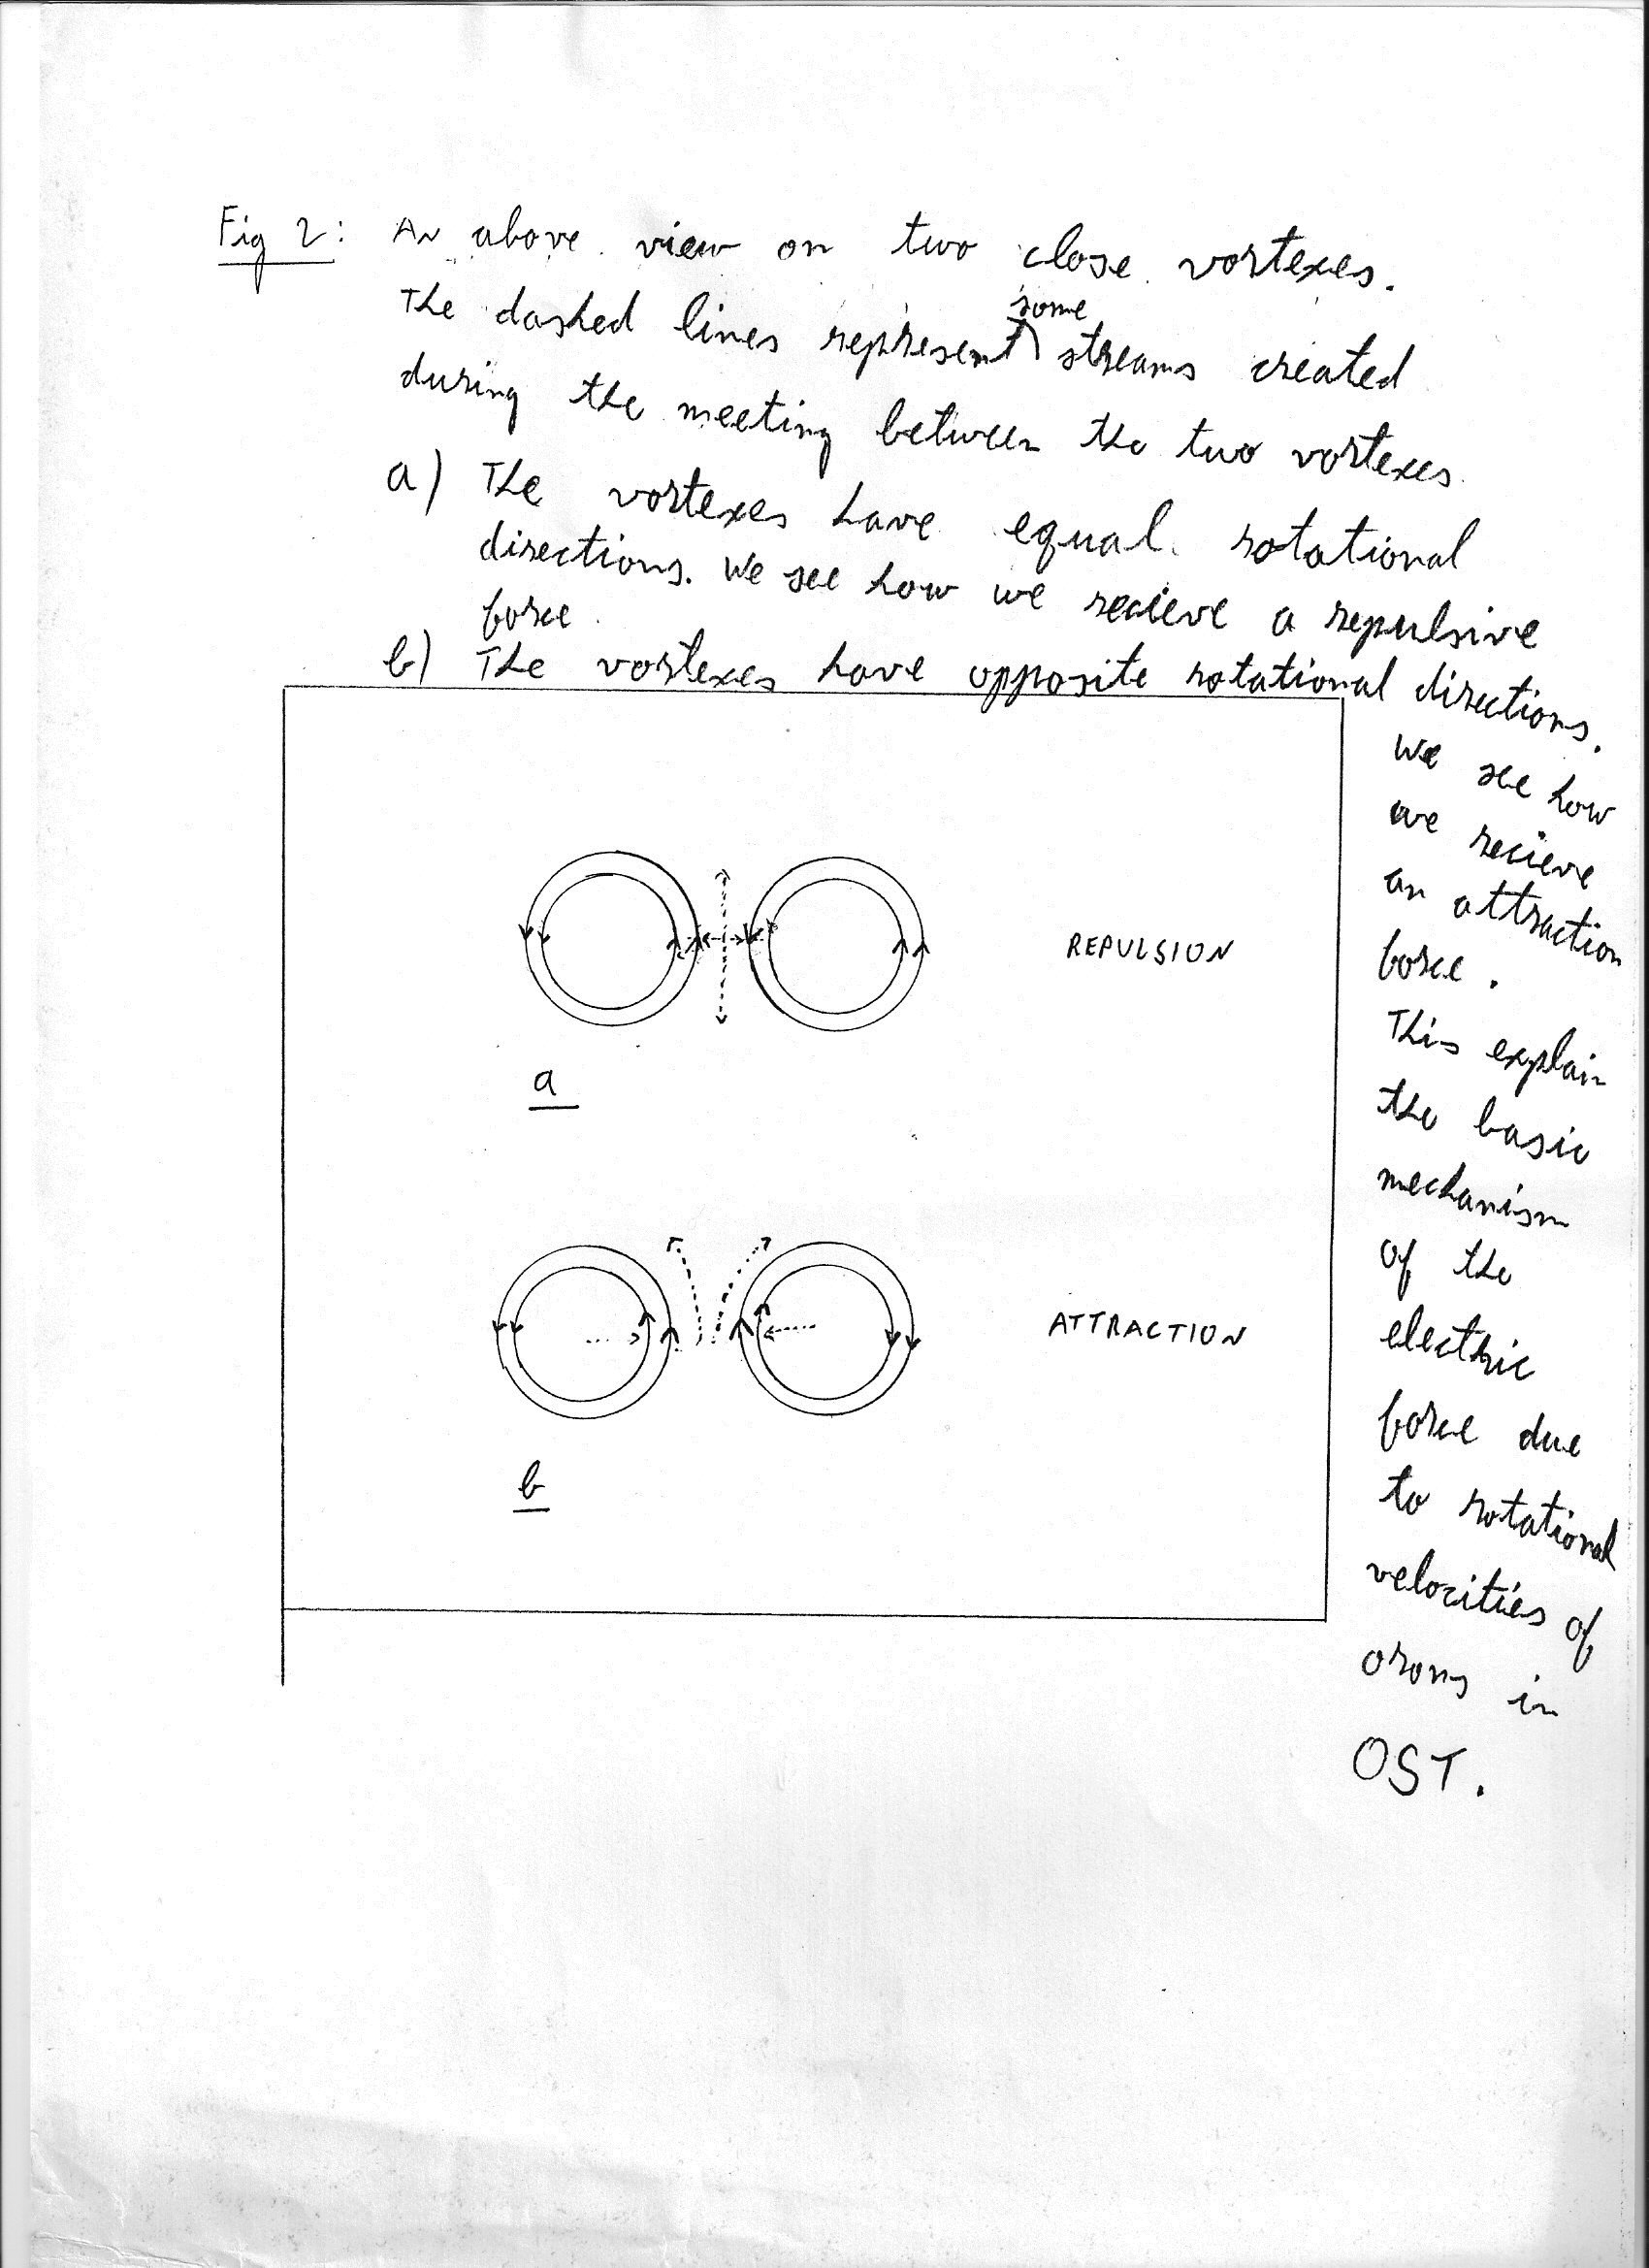 Fig 2: An above view on two close vortexes.
The dashed lines represent some streams created
during the meeting between the two vortexes.
a) The vortexes have equal rotational
directions. We see how we recieve a repulsive
force.
b) The vortexes have opposite rotational directions.
We
see how
we recieve
an attraction
force.
This explain
the basic
mechanism
of the
electric
force due
to rotational
velocities of
orons in
OST.
REPULSION
a
ATTRACTION
b